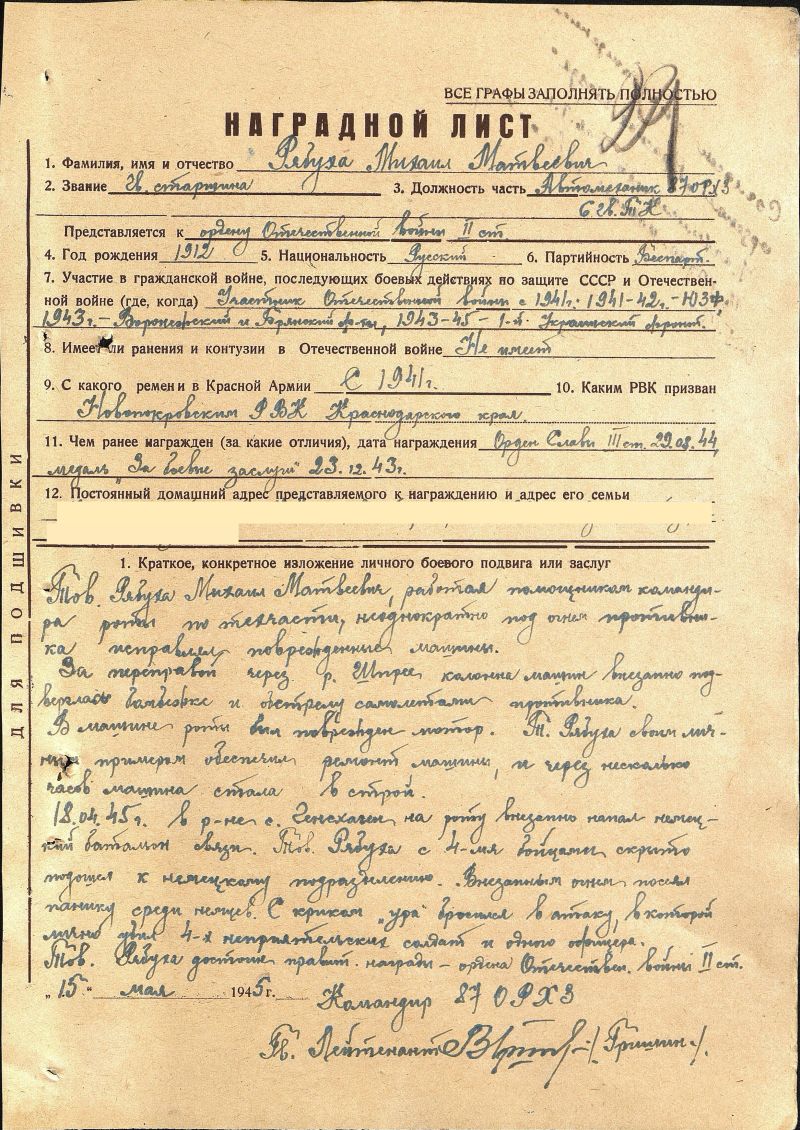 ВСЕ ГРАФЫ ЗАПОЛНЯТЬ ПОЛНОСТЬЮ
НАГРАДНОЙ ЛИСТ
1. Фамилия, имя и отчество Рябуха Михаил Матвеевич
2. Звание Гв. старшина 3. Должность часть Автомеханик 87 ОРХЗ
6 гв. ТК
Представляется к ордену Отечественной войны II ст
4. Год рождения 1912 5. Национальность Русский 6. Партийность Беспарт.
7. Участие в гражданской войне, последующих боевых действиях по защите СССР и Отечествен-
ной войне (где, когда) Участник Отечественной войны с 1941г. 1941-42г.-ЮЗФ,
1943г.- Воронежский и Брянский фр-ты, 1943-45 - 1-й Украинский фронт.
8. Имеет ли ранения и контузии в Отечественной войне Не имеет
9. С какого ремени в Красной Армии С 1941г. 10. Каким РВК призван
Новопокровским РВК Краснодарского края.
11. Чем ранее награжден (за какие отличия), дата награждения Орден Славы III ст. 29.08.44,
медаль "За боевые заслуги" 23.12.43г.
12. Постоянный домашний адрес представляемого к награждению и адрес его семьи
1. Краткое, конкретное изложение личного боевого подвига или заслуг
Тов. Рябуха Михаил Матвеевич, работая помощником команди-
ра роты по техчасти, неоднократно под огнем противни-
ка исправлял поврежденные машины.
За переправой через р. Шпрее колонна машин внезапно под-
верглась бомбежке и обстрелу самолетами противника.
В машине роты был поврежден мотор. Т. Рябуха своим лич-
ным примером обеспечил ремонт машины, и через несколько
часов машина стала в строй.
18.04.45г. в р-не с. Генсхаген на роту внезапно напал немец-
кий батальон связи. Тов. Рябуха с 4-мя бойцами скрыто
подошел к немецкому подразделению. Внезапным огнем посеял
панику среди немцев. С криком "ура" бросился в атаку, в которой
лично убил 4-х неприятельских солдат и одного офицера.
Тов. Рябуха достоин правит. награды - ордена Отечествен. войны II ст.
"15" мая 1945г. Командир 87 ОРХЗ
Гв. Лейтенант /Гришин/.
ДЛЯ ПОДШИВКИ